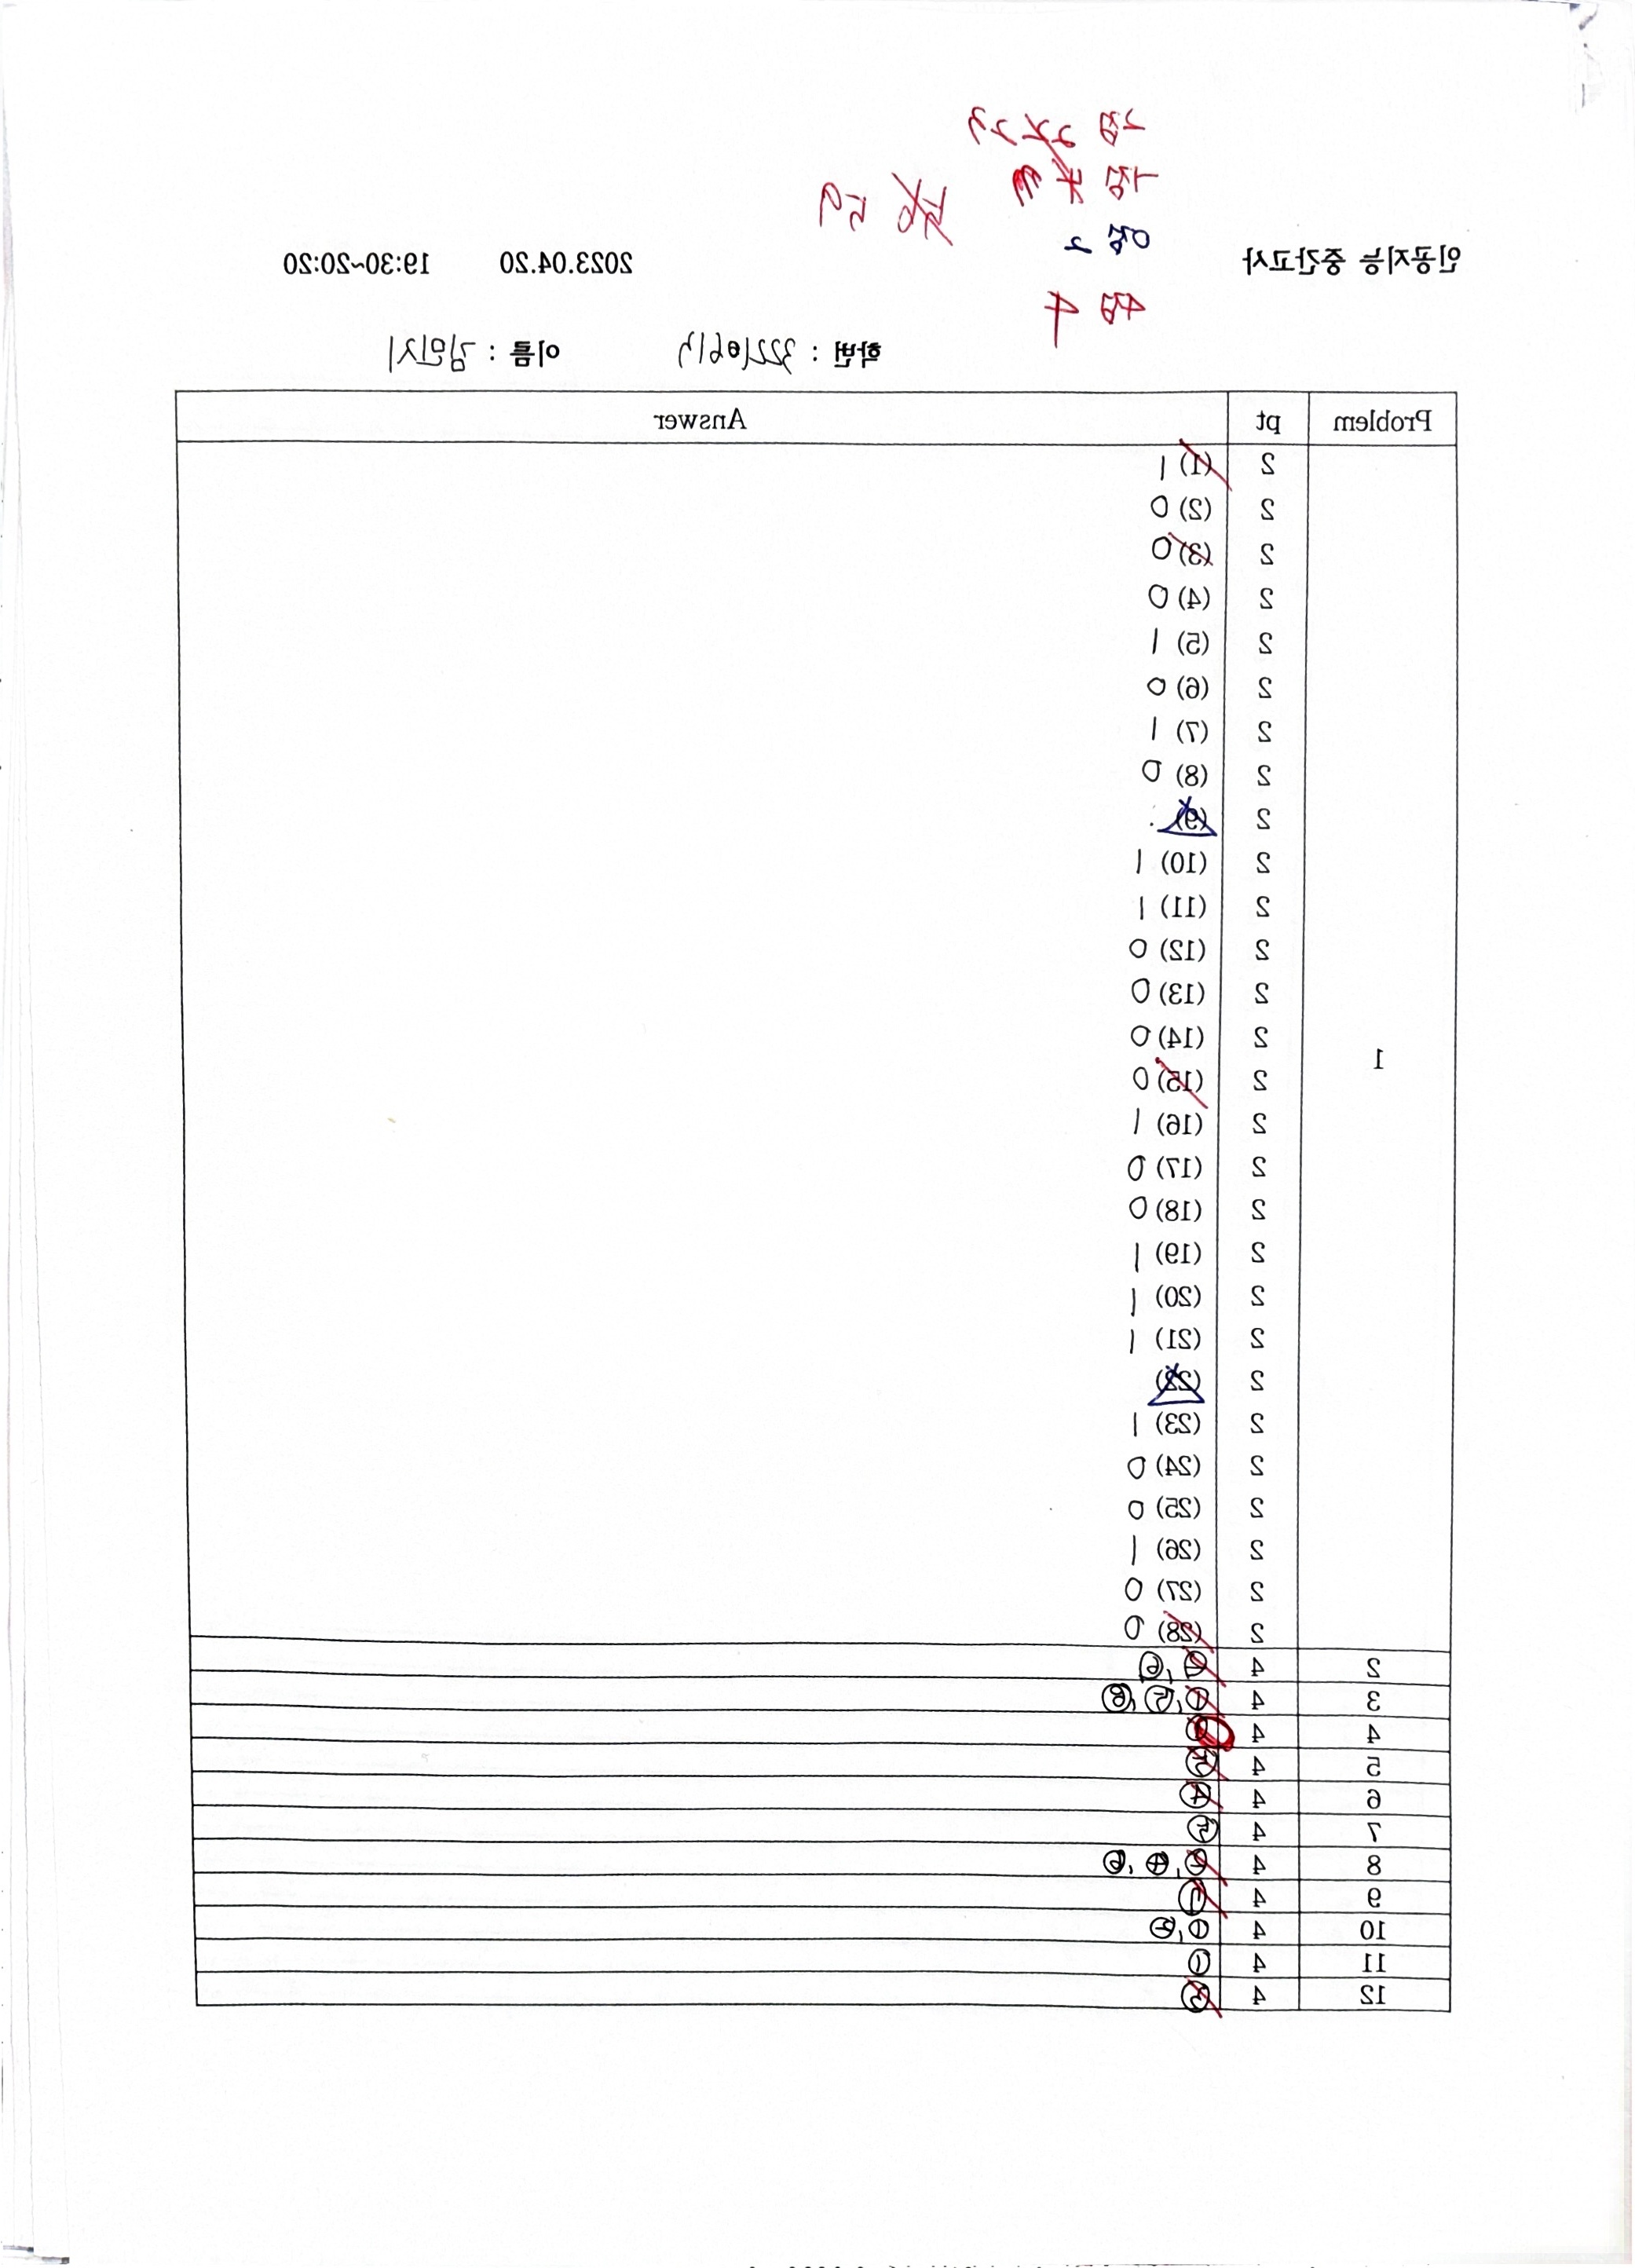 2점
1점
0점 2
4점 4
59
인공지능 중간고사 2023.04.20 19:30~20:20
학번 : 이름 : 김민지
Problem pt Answer
1
2 (1) 1
2 (2) 0
2 (3) 0
2 (4) 0
2 (5) 1
2 (6) 0
2 (7) 1
2 (8) 0
2 (9)
2 (10) 1
2 (11) 1
2 (12) 0
2 (13) 0
2 (14) 0
2 (15) 0
2 (16) 1
2 (17) 0
2 (18) 0
2 (19) 1
2 (20) 1
2 (21) 1
2 (22)
2 (23) 1
2 (24) 0
2 (25) 0
2 (26) 1
2 (27) 0
2 (28) 0
2 4 ①, ⑥
3 4 ①, ⑤, ⑧
4 4
5 4
6 4 ④
7 4 ⑤
8 4 ②, ④, ⑥
9 4 ①
10 4 ①, ⑤
11 4 ①
12 4 ③